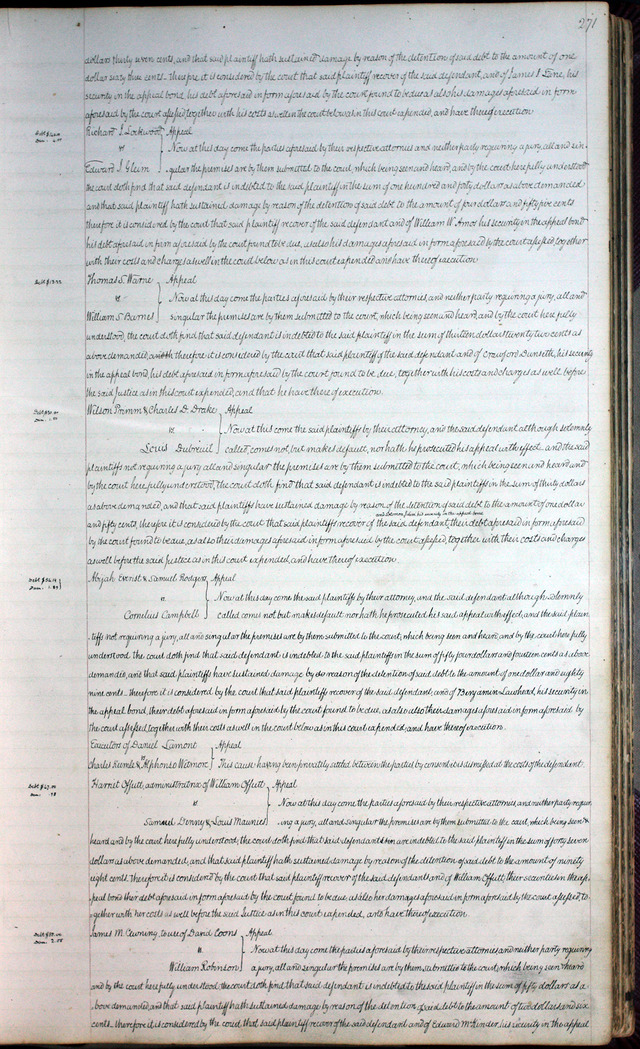 271
dollars thirty seven cents, and that said plaintiff hath sustained damage by reason of the detention of said debt to the amount of one
dollar sixty three cents. therefore it is considered by the court that said plaintiff recover of the said defendant, and of James I. his
security in the appeal bond, his debt aforesaid in form aforesaid by the court found to be due as also his damages aforesaid in form
aforesaid by the court assessed, together with his costs as well in the court below as in this court expended, and have thereof execution.
Richard I. Lockwood } Appeal
vs Now at this day come the parties aforesaid by their respective attornies and neither party requiring a jury, all and sin-
Edward I. Gleim gular the premises are by them submitted to the court, which being seen and heard, and by the court here fully understood
the court doth find that said defendant is indebted to the said plaintiff in the sum of one hundred and forty dollars as above demanded
and that said plaintiff hath sustained damage by reason of the detention of said debt to the amount of four dollars and fifty five cents
therefore it is considered by the court that said plaintiff recover of the said defendant and of William W. Amos his security in the appeal bond
his debt aforesaid in form aforesaid by the court found to be due, as also his damages aforesaid in form aforesaid by the court assessed together
with their costs and charges as well in the court below as in this court expended and have thereof execution.
Thomas S. Warne } Appeal
vs Now at this day come the parties aforesaid by their respective attornies, and neither party requiring a jury, all and
William S. Barnes singular the premises are by them submitted to the court, which being seen and heard, and by the court here fully
understood, the court doth find that said defendant is indebted to the said plaintiff in the sum of thirteen dollars twenty two cents as
above demanded, therefore it is considered by the court that said plaintiff of the said defendant and of Crawford Dunseth, his security
in the appeal bond, his debt aforesaid in form aforesaid by the court found to be due, together with his costs and charges as well before
the said Justice as in this court expended, and that he have thereof execution.
Wilson Primm & Charles D. Drake } Appeal
vs Now at this day come the said plaintiffs by their attorney, and the said defendant although solemnly
Louis Dubreuil called, comes not, but makes default, nor hath he prosecuted his appeal with effect, and the said
plaintiffs not requiring a jury, all and singular the premises are by them submitted to the court, which being seen and heard and
by the court here fully understood, the court doth find that said defendant is indebted to the said plaintiffs in the sum of thirty dollars
as above demanded, and that said plaintiffs have sustained damage by reason of the detention of said debt to the amount of one dollar
and fifty cents, therefore it is considered by the court that said plaintiffs recover of the said defendant, their debt aforesaid in form aforesaid
by the court found to be due, as also their damages aforesaid in form aforesaid by the court assessed, together with their costs and charges
as well before the said Justice as in this court expended, and have thereof execution.
Abijah Everist & Samuel Rodgers } Appeal
vs Now at this day come the said plaintiffs by their attorney, and the said defendant although solemnly
Cornelius Campbell called comes not but makes default nor hath he prosecuted his said appeal with effect, and the said plain-
tiffs not requiring a jury, all and singular the premises are by them submitted to the court, which being seen and heard, and by the court here fully
understood the court doth find that said defendant is indebted to the said plaintiffs in the sum of fifty four dollars and fourteen cents as above
demanded, and that said plaintiffs have sustained damage by reason of the detention of said debt to the amount of one dollar and eighty
nine cents. therefore it is considered by the court that said plaintiffs recover of the said defendant, and of Benjamin Lawhead, his security in
the appeal bond, their debt aforesaid in form aforesaid by the court found to be due, as also their damages aforesaid in form aforesaid by
the court assessed, together with their costs as well in the court below as in this court expended, and have thereof execution.
Executor of Daniel Lamont } Appeal
vs
Charles Keemle & Alphonso Wetmore This cause having been privately settled between the parties by consent it is dismissed at the costs of the defendant.
Harriet Offutt, administratrix of William Offutt } Appeal
vs Now at this day come the parties aforesaid by their respective attornies, and neither party requir-
Samuel Denny & Louis Maunies ing a jury, all and singular the premises are by them submitted to the court, which being seen &
heard and by the court here fully understood; the court doth find that said defendants are indebted to the said plaintiff in the sum of forty seven
dollars as above demanded, and that said plaintiff hath sustained damage by reason of the detention of said debt to the amount of ninety
eight cents. therefore it is considered by the court that said plaintiff recover of the said defendants and of William Offutt, their securities in the ap-
peal bond their debt aforesaid in form aforesaid by the court found to be due, as also her damages aforesaid in form aforesaid by the court assessed, to-
gether with her costs as well before the said Justice as in this court expended, and have thereof execution.
James M. Cumming, to use of David Coons } Appeal
vs Now at this day come the parties aforesaid by their respective attornies and neither party requiring
William Robinson a jury, all and singular the premises are by them submitted to the court, which being seen & heard
and by the court here fully understood, the court doth find that said defendant is indebted to the said plaintiff in the sum of fifty dollars as a-
bove demanded, and that said plaintiff hath sustained damage by reason of the detention of said debt to the amount of two dollars and six
cents. therefore it is considered by the court, that said plaintiff recover of the said defendant and of Edward his security in the appeal